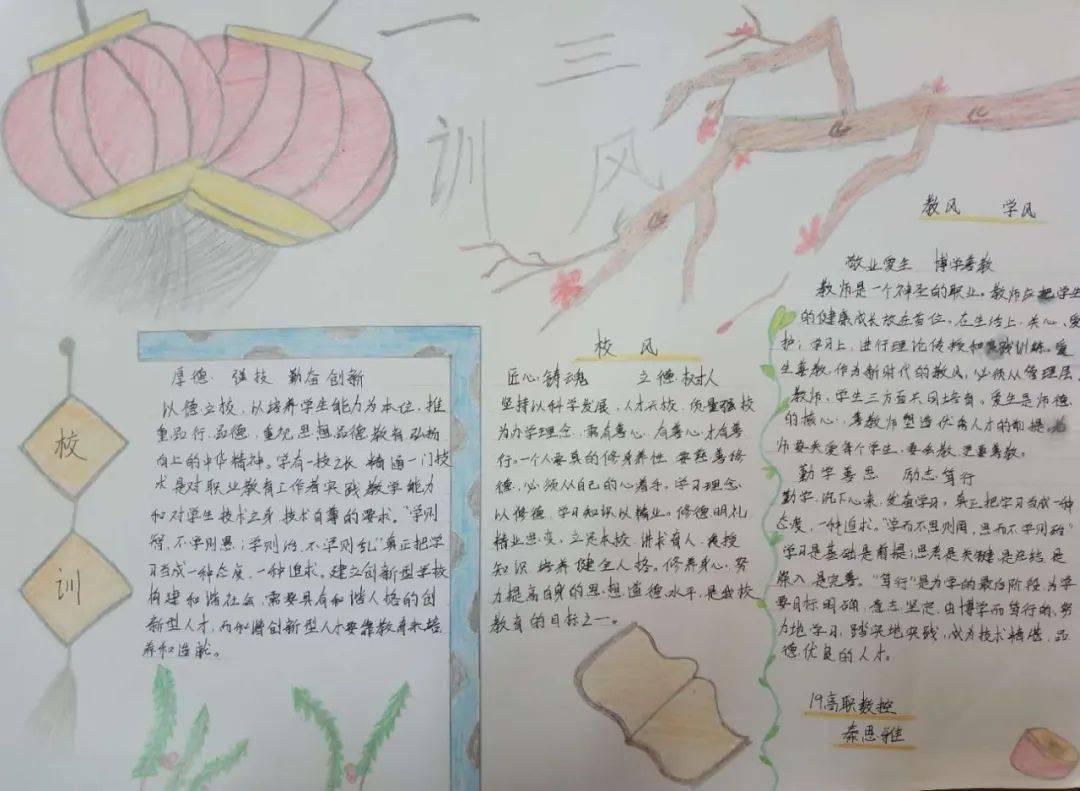 一训
三风
校训
厚德 强技 勤奋创新
以德立校,以培养学生能力为本位,推
重品行、品德,重视思想品德教育弘扬
向上的中华精神。学有一技之长 精通一门技
术是对职业教育工作者实践教学能力
和对学生技术立身、技术自尊的要求。“学则
智,不学则愚;学则治,不学则乱”真正把学
习当成一种态度、一种追求。建立创新型学校
构建和谐社会,需要具有和谐人格的创
新型人才,而和谐创新型人才要靠教育来培
养和造就。
校 风
匠心铸魂 立德树人
坚持以科学发展,人才兴校、质量强校
为办学理念,需有善心,有善心才有善
行。一个人要真的修身养性 要慈善修
德,必须从自己的心着手。学习理念
以修德,学习知识以精业。修德明礼
精业思变,立足本校,讲求育人,教授
知识 培养健全人格。修养身心,努
力提高自身的思想道德水平,是我校
教育的目标之一。
教风 学风
敬业爱生 博学善教
教师是一个神圣的职业。教师应把学生
的健康成长放在首位。在生活上,关心、爱
护;学习上,进行理论传授和实践训练。爱
生善教,作为新时代的教风,必须从管理层、
教师,学生三方面共同培育。爱生是师德
的核心,善教师塑造优秀人才的前提
师要关爱每个学生,要会教,更要善教。
勤学善思 励志笃行
勤学,沉下心来,发奋学习,真正把学习当成一种
态度,一种追求。“学而不思则罔,思而不学则殆”
学习是基础是前提;思考是关键是总结是
深入,是完善。“笃行”是为学的最后阶段,为学
要目标明确,意志坚定,由博学而笃行的,努
力地学习,踏实地实践,成为技术精湛,品
德优良的人才。
19高职数控
秦思雅